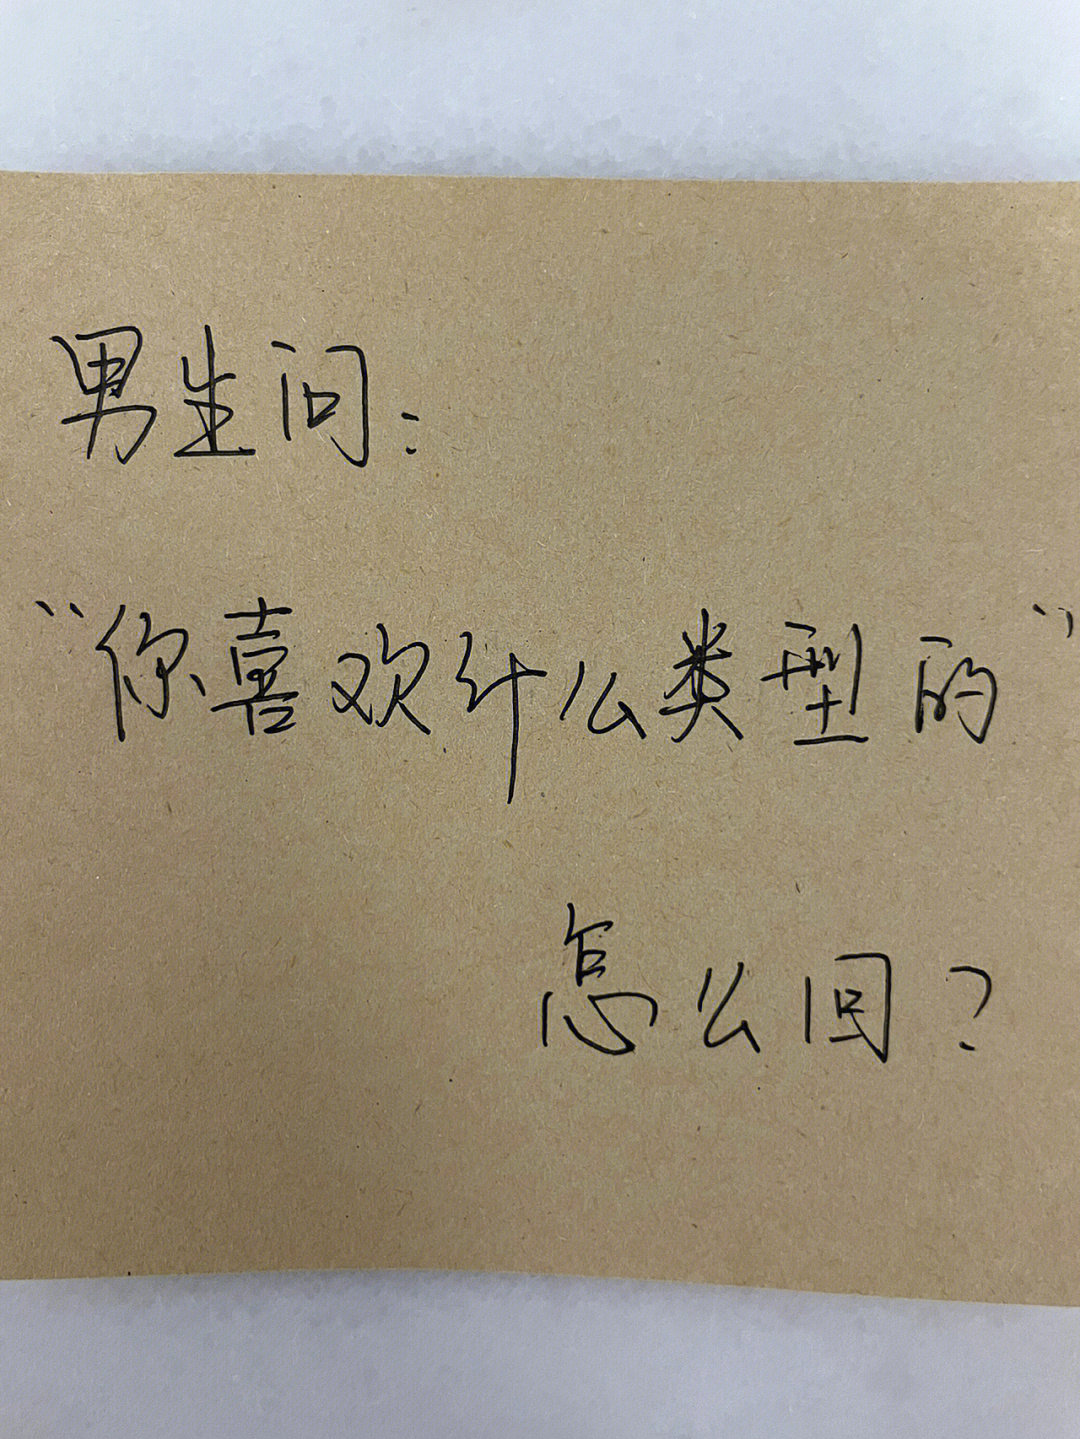 男生问：
“你喜欢什么类型的”
怎么回？